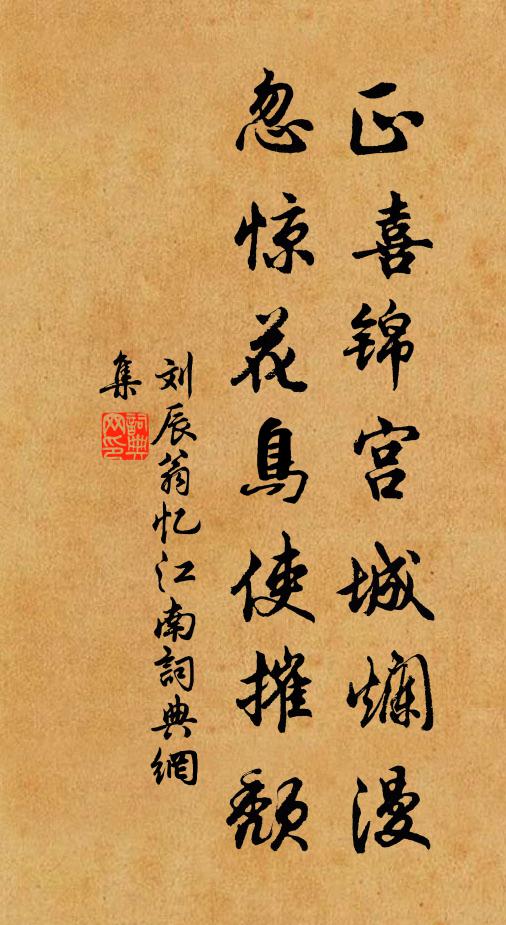 正喜锦宫城爛漫
忽惊花鳥使摧颓
刘辰翁忆江南詞典網
集
詞典网印